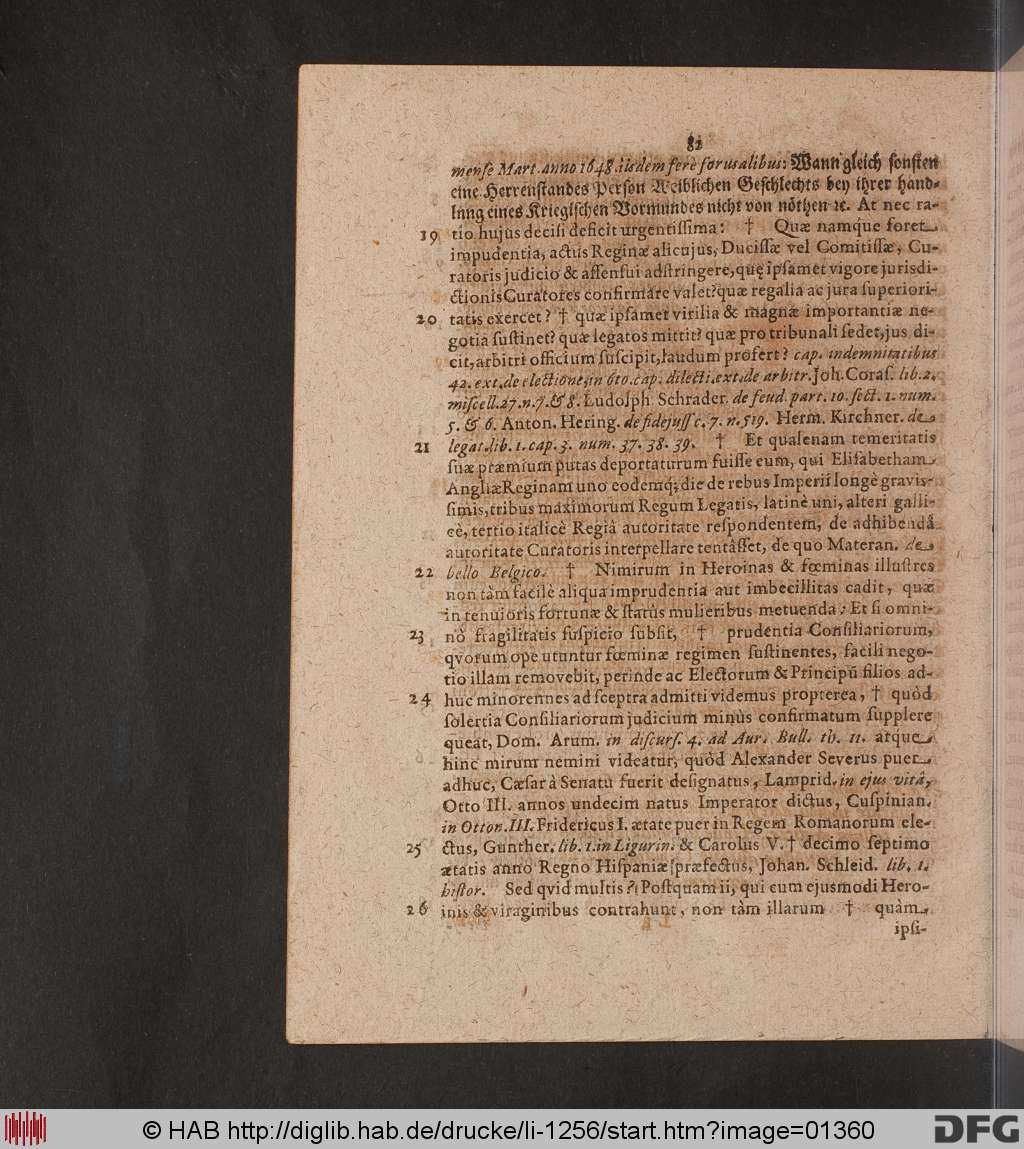 82
mense Mart. anno 1648. iisdem ferè formalibus: Wann gleich sonsten
eine Herrenstandes Person Weiblichen Geschlechts bey ihrer hand-
lung eines Kriegischen Vormundes nicht von nöthen ꝛc. At nec ra-
19 tio hujus decisi deficit urgentissima: † Quæ namq́ue foret
impudentia, actus Reginæ alicujus, Ducissæ vel Comitissæ, Cu-
ratoris judicio & assensui adstringere, quę ipsamet vigore jurisdi-
ctionis Curatores confirmare valet? quæ regalia ac jura superiori-
20 tatis exercet? † quæ ipsamet virilia & magnæ importantiæ ne-
gotia sustinet? quæ legatos mittit? quæ pro tribunali sedet, jus di-
cit, arbitri officium suscipit, laudum profert? cap. indemnitatibus
42. ext. de electione, in 6to. cap. dilecti. ext. de arbitr. Joh. Coras. lib. 2.
miscell. 27. n. 7. & 8. Ludolph Schrader. de feud. part. 10. sect. 1. num.
5. & 6. Anton. Hering. de fidejuss. c. 7. n. 519. Herm. Kirchner. de
21 legat. lib. 1. cap. 3. num. 37. 38. 39. † Et qualenam temeritatis
suæ præmium putas deportaturum fuisse eum, qui Elisabetham
Angliæ Reginam uno eodemq; die de rebus Imperii longè gravis-
simis, tribus maximorum Regum Legatis, latinè uni, alteri galli-
cè, tertio italicè Regiâ autoritate respondentem, de adhibendâ
autoritate Curatoris interpellare tentâsset, de quo Materan. de
22 bello Belgico. † Nimirum in Heroinas & fœminas illustres
non tàm facilè aliqua imprudentia aut imbecillitas cadit, quæ
in tenuioris fortunæ & statûs mulieribus metuenda: Et si omni-
23 nò fragilitatis suspicio subsit, † prudentia Consiliariorum,
qvorum ope utuntur fœminæ regimen sustinentes, facili nego-
tio illam removebit, perinde ac Electorum & Principũ filios ad-
24 huc minorennes ad sceptra admitti videmus propterea, † quòd
solertia Consiliariorum judicium minùs confirmatum supplere
queat, Dom. Arum. in discurs. 4. ad Aur. Bull. th. 11. atque
hinc mirum nemini videatur, quòd Alexander Severus puer
adhuc, Cæsar à Senatu fuerit designatus, Lamprid. in ejus vitâ,
Otto III. annos undecim natus Imperator dictus, Cuspinian.
in Otton. III. Fridericus I. ætate puer in Regem Romanorum ele-
25 ctus, Gunther. lib. 1. in Ligurin. & Carolus V. † decimo septimo
ætatis anno Regno Hispaniæ præfectus, Johan. Schleid. lib. 1.
histor. Sed qvid multis? Postquam ii, qui cum ejusmodi Hero-
26 inis & viraginibus contrahunt, non tàm illarum † quàm
ipsi-
© HAB http://diglib.hab.de/drucke/li-1256/start.htm?image=01360
DFG